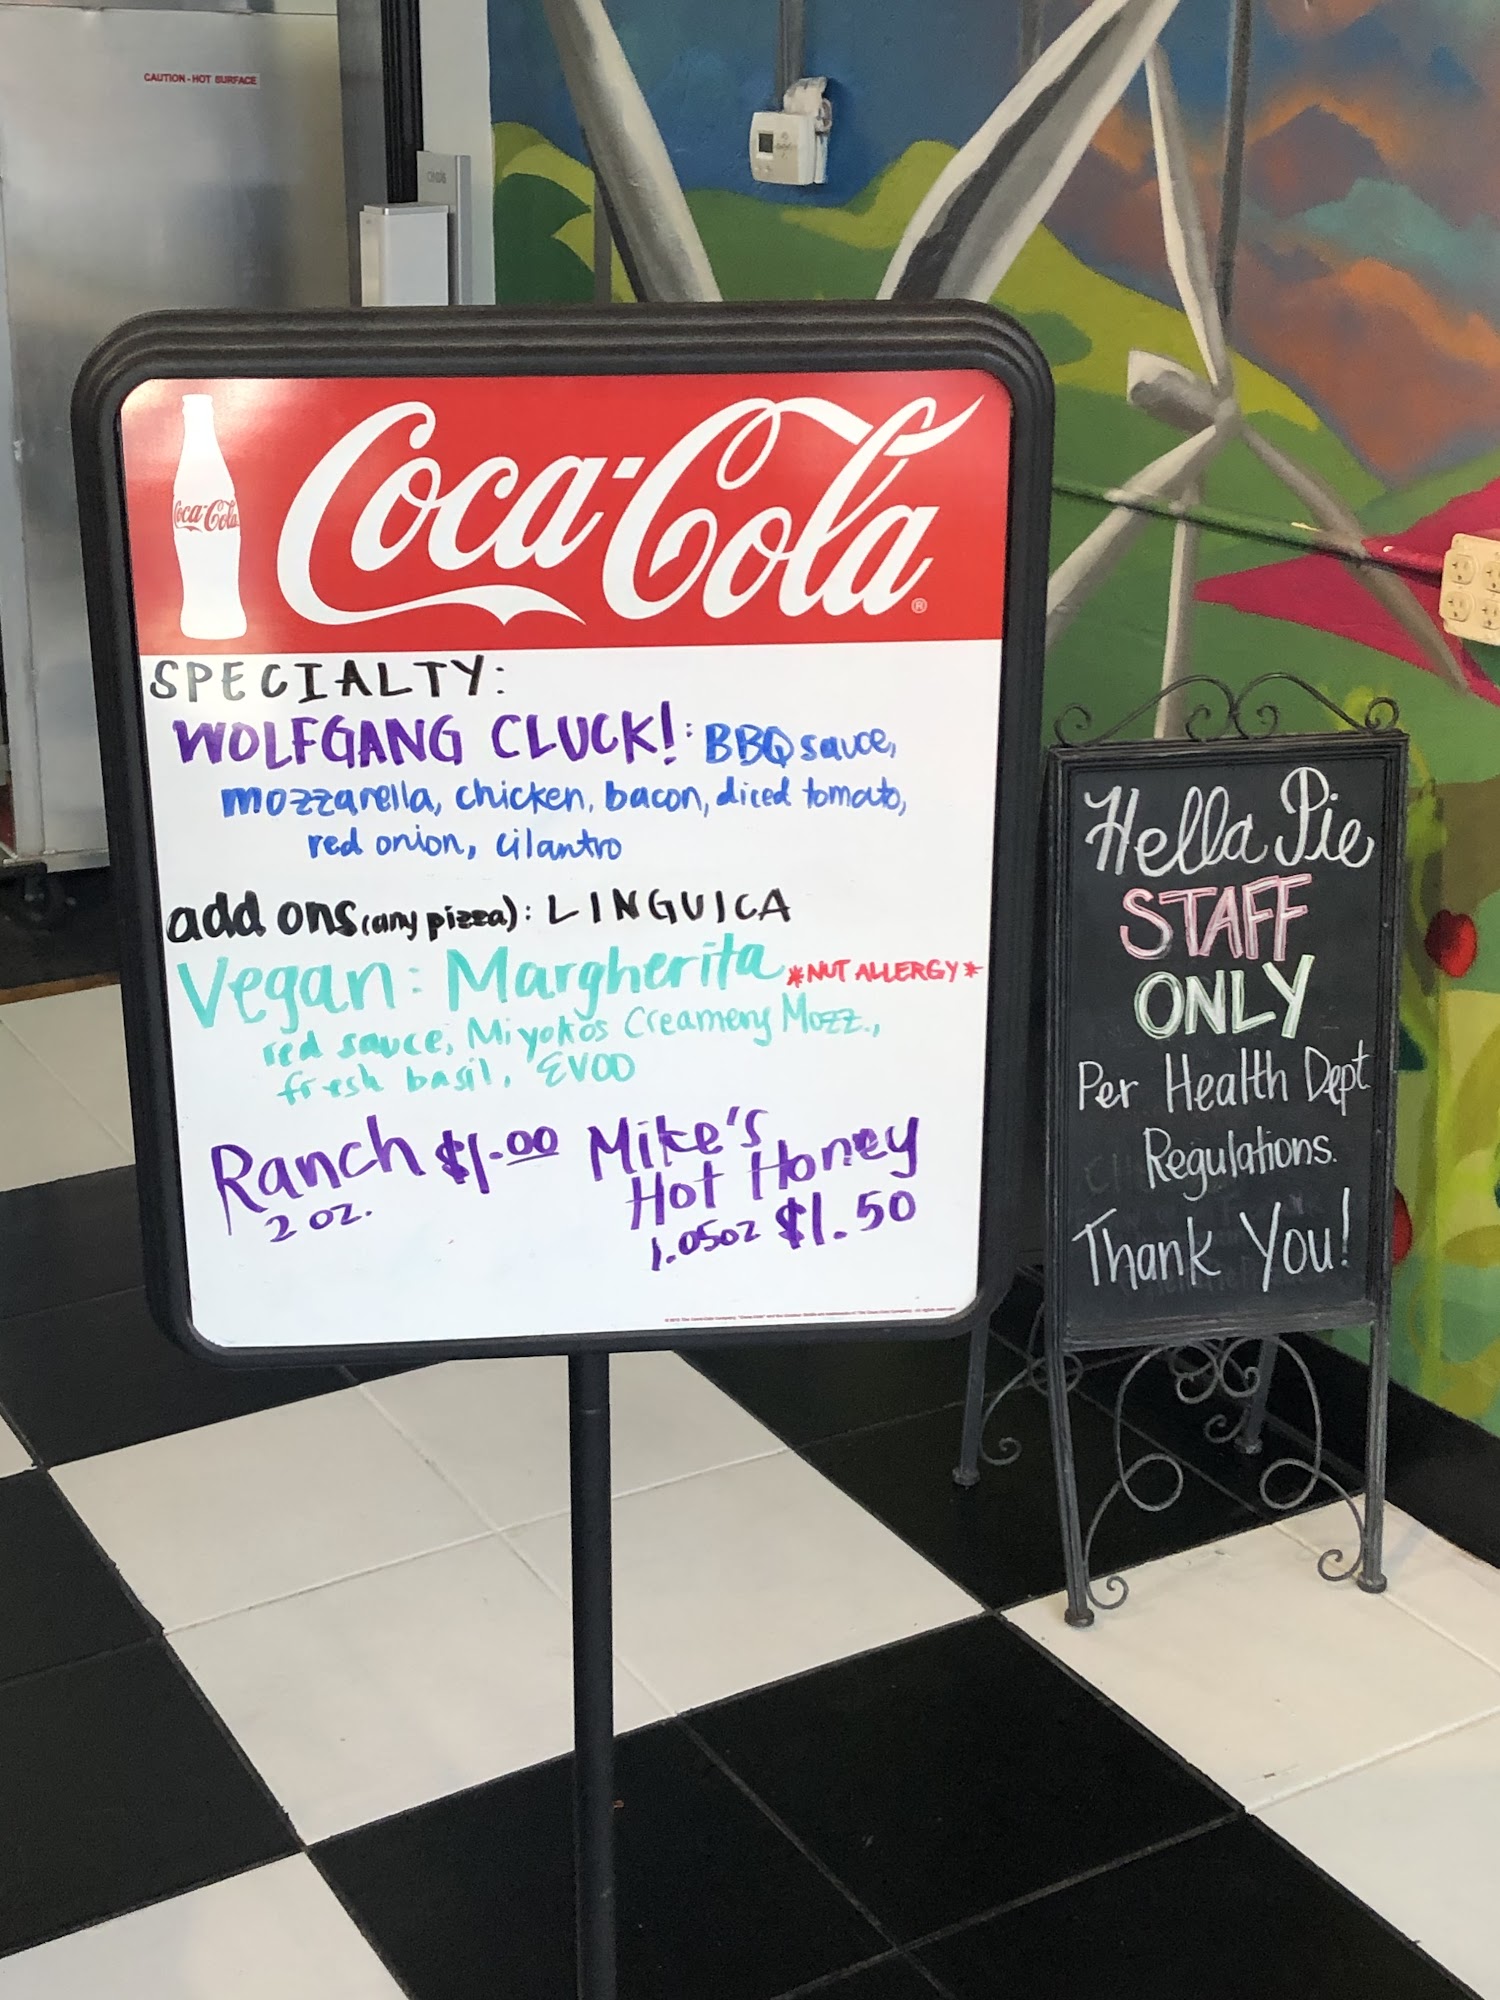 CAUTION - HOT SURFACE
Coca-Cola
Coca-Cola®
SPECIALTY:
WOLFGANG CLUCK!: BBQ sauce,
mozzarella, chicken, bacon, diced tomato,
red onion, cilantro
add ons (any pizza): LINGUICA
Vegan: Margherita *NUT ALLERGY*
red sauce, Miyokos Creamery Mozz.,
fresh basil, EVOO
Ranch $1.00
2 oz.
Mike's
Hot Honey
1.05oz $1.50
Hella Pie
STAFF
ONLY
Per Health Dept
Regulations.
Thank You!